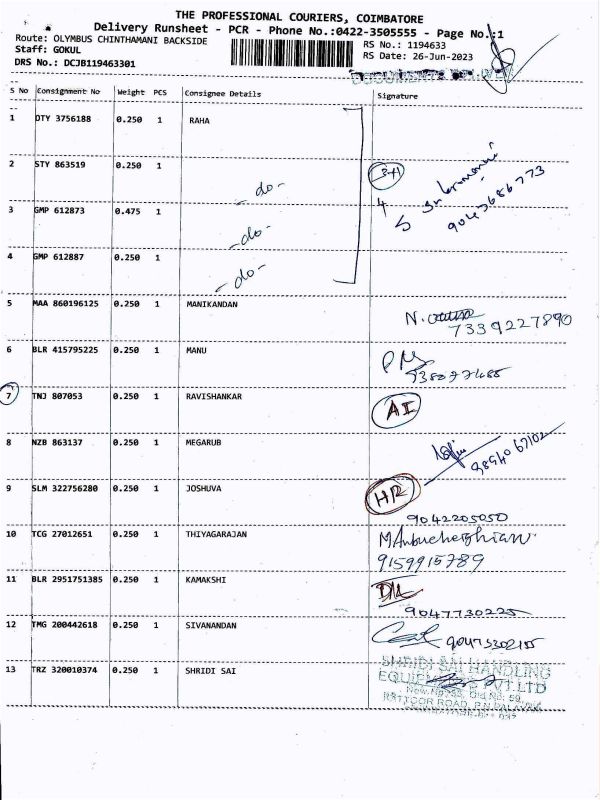 THE PROFESSIONAL COURIERS, COIMBATORE
Delivery Runsheet - PCR - Phone No.:0422-3505555 - Page No.:1
Route: OLYMBUS CHINTHAMANI BACKSIDE
RS No.: 1194633
Staff: GOKUL
RS Date: 26-Jun-2023
DRS No.: DCJB119463301
S No Consignment No Weight PCS Consignee Details Signature
1 DTY 3756188 0.250 1 RAHA
2 STY 863519 0.250 1
-do-
3 GMP 612873 0.475 1
-do-
4 GMP 612887 0.250 1
-do-
5 MAA 860196125 0.250 1 MANIKANDAN
7339227890
6 BLR 415795225 0.250 1 MANU
7 TNJ 807053 0.250 1 RAVISHANKAR AI
8 NZB 863137 0.250 1 MEGARUB
9 SLM 322756280 0.250 1 JOSHUVA HR
9042205050
10 TCG 27012651 0.250 1 THIYAGARAJAN
9159915789
11 BLR 2951751385 0.250 1 KAMAKSHI
9047730225
12 TMG 200442618 0.250 1 SIVANANDAN
13 TRZ 320010374 0.250 1 SHRIDI SAI
SHRIDI SAI HANDLING
EQUIPMENTS PVT. LTD